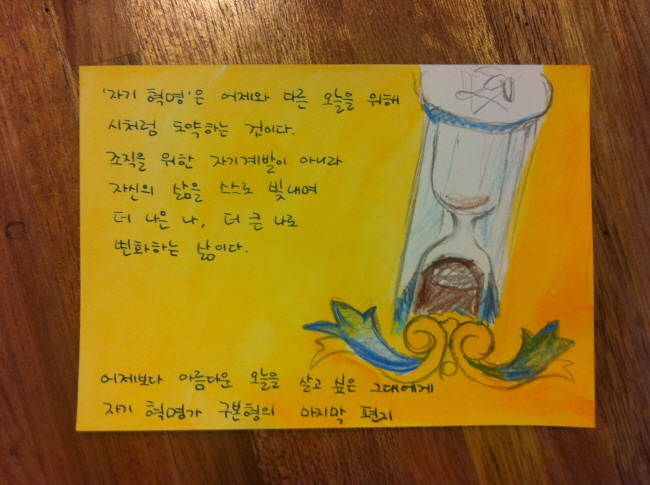 '자기 혁명'은 어제와 다른 오늘을 위해
시처럼 도약하는 것이다.
조직을 위한 자기계발이 아니라
자신의 삶을 스스로 빛내며
더 나은 나, 더 큰 나로
변화하는 삶이다.
어제보다 아름다운 오늘을 살고 싶은 그대에게
자기 혁명가 구본형의 마지막 편지